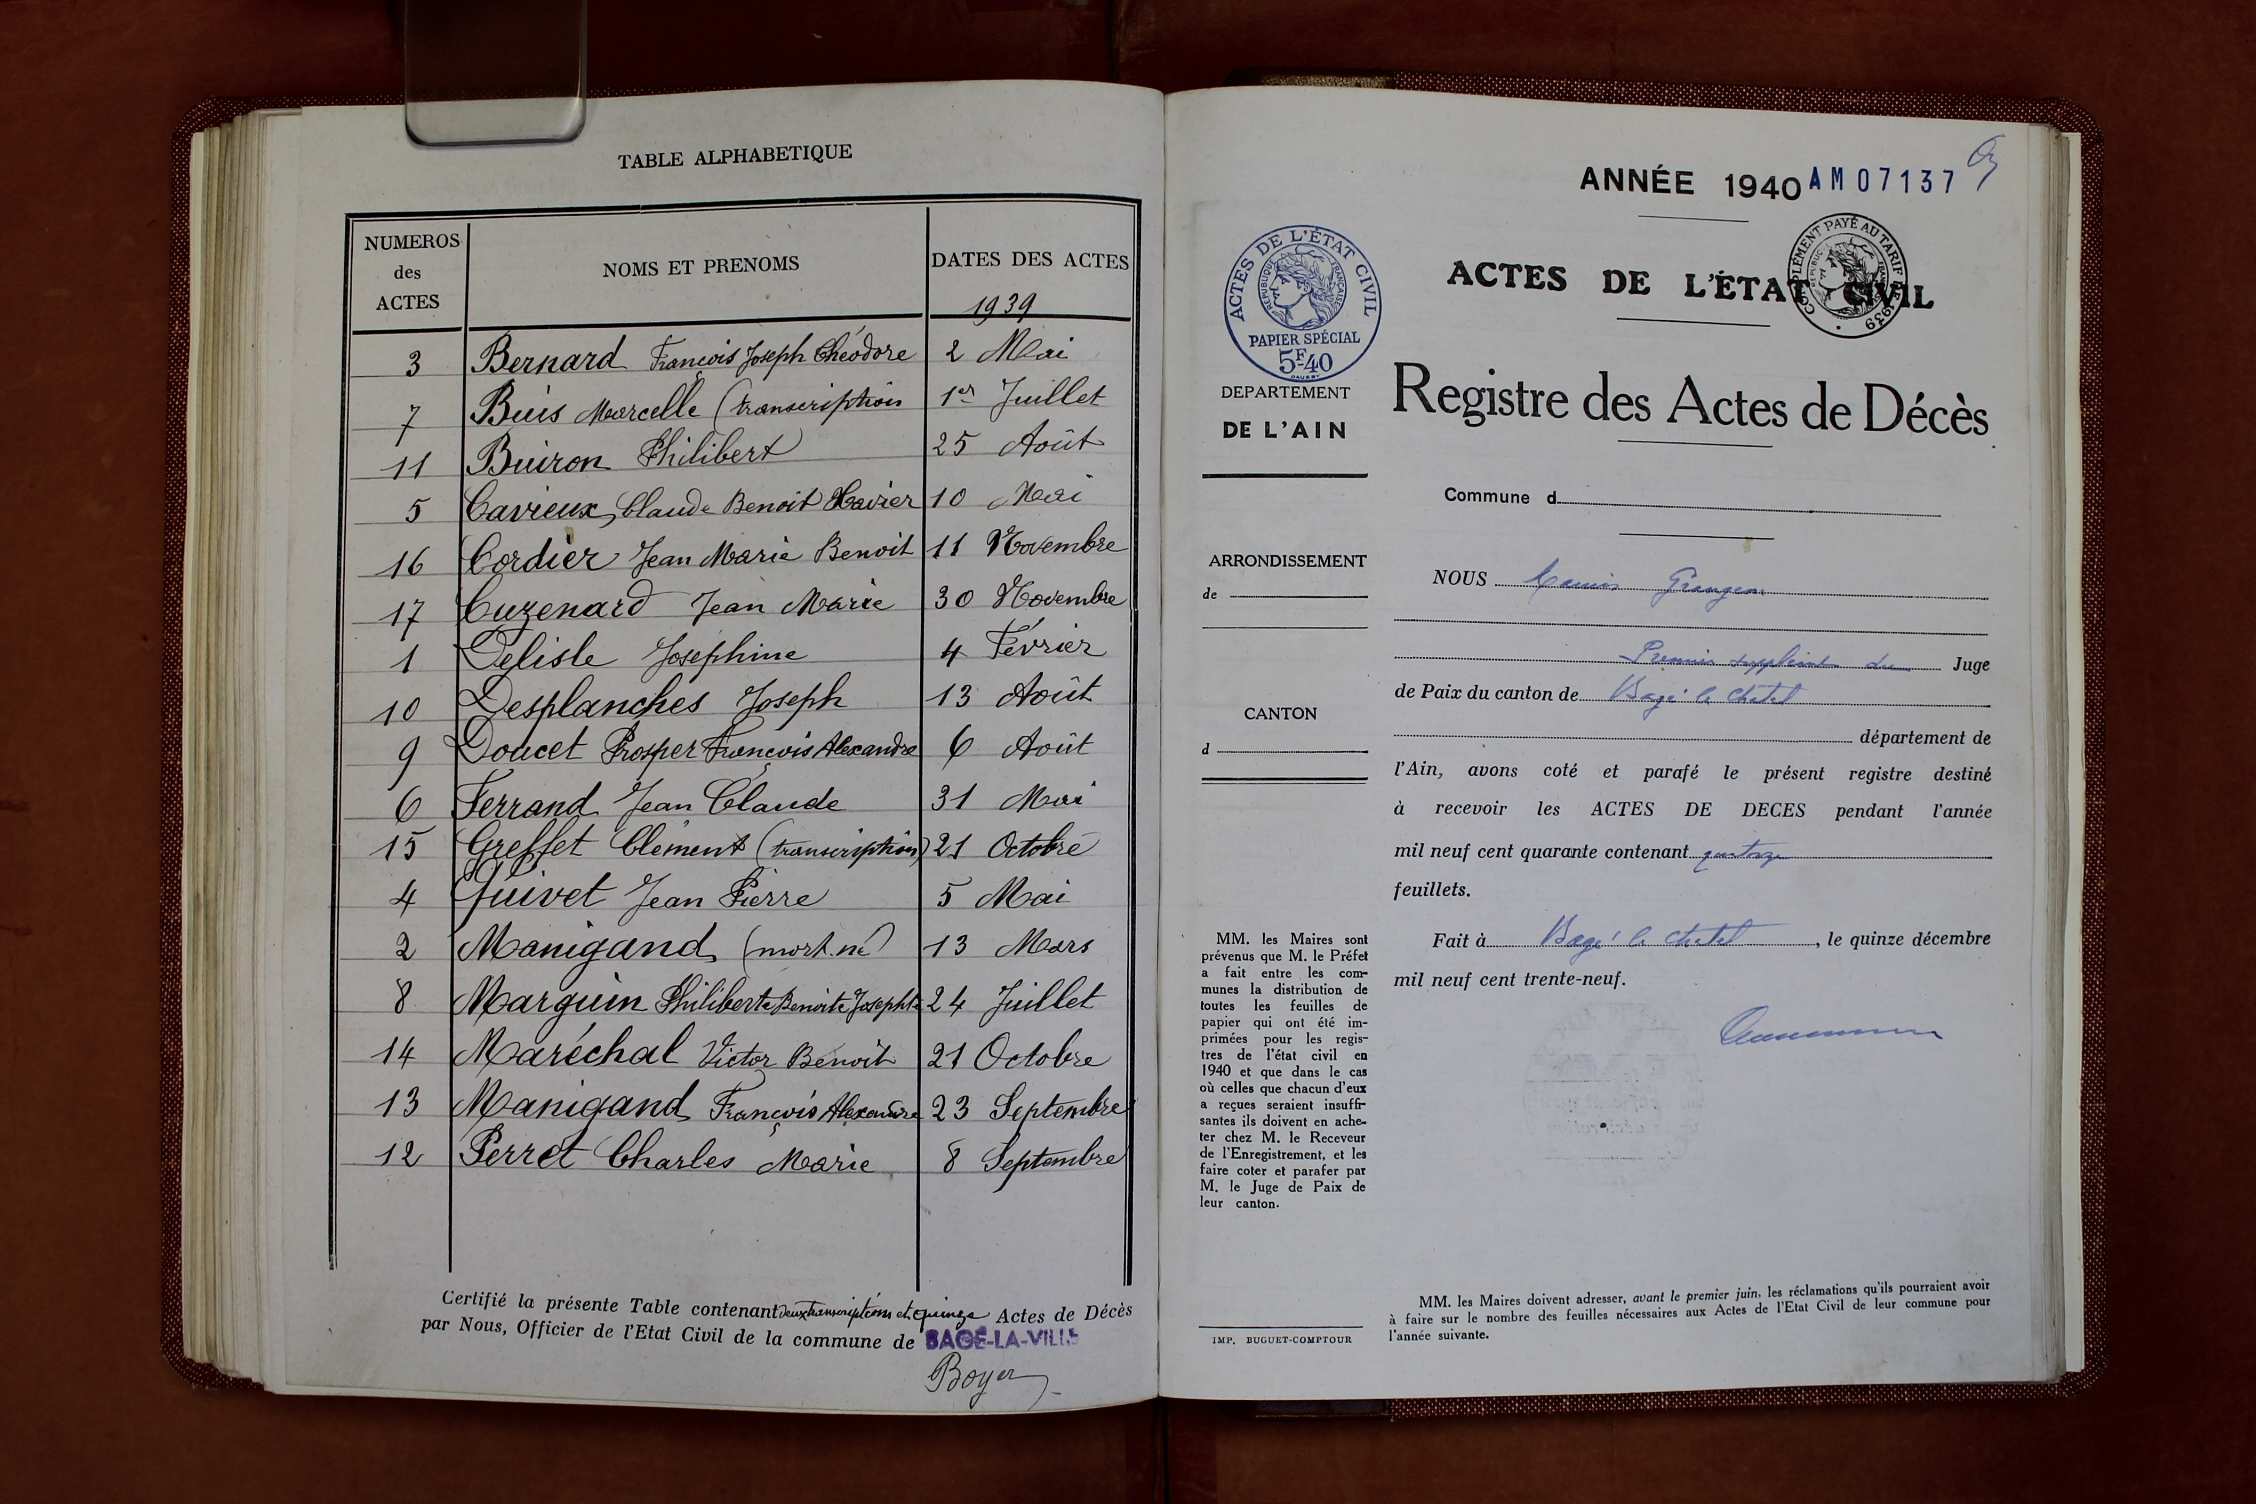 TABLE ALPHABETIQUE
NUMEROS des ACTES
NOMS ET PRENOMS
DATES DES ACTES
1939
3 Bernard François Joseph Théodore 2 Mai
7 Buis Marcelle (transcription 1er Juillet
11 Buiron Philibert 25 Août
5 Cavieux, Claude Benoit Xavier 10 Mai
16 Cordier Jean Marie Benoit 11 Novembre
17 Cuzenard Jean Marie 30 Novembre
1 Delisle Joséphine 4 Février
10 Desplanches Joseph 13 Août
9 Doucet Prosper François Alexandre 6 Août
6 Ferrand Jean Claude 31 Mai
15 Greffet Clément (transcription) 21 Octobre
4 Guivet Jean Pierre 5 Mai
2 Manigand (mort-né) 13 Mars
8 Marguin Philiberte Benoite Josephte 24 Juillet
14 Maréchal Victor Benoit 21 Octobre
13 Manigand François Alexandre 23 Septembre
12 Perret Charles Marie 8 Septembre
Certifié la présente Table contenant deux transcriptions et quinze Actes de Décès
par Nous, Officier de l'Etat Civil de la commune de BAGÉ-LA-VILLE
Boyer
ANNÉE 1940 AM07137
ACTES DE L'ÉTAT CIVIL
RÉPUBLIQUE FRANÇAISE
PAPIER SPÉCIAL
5F40
COMPLÉMENT PAYÉ AU TARIF DE 1939
ACTES DE L'ÉTAT CIVIL
Registre des Actes de Décès
DEPARTEMENT
DE L'AIN
Commune d
ARRONDISSEMENT
de
CANTON
d
NOUS Grangeon
Premier suppléant du Juge
de Paix du canton de Bagé le Chatel
département de
l'Ain, avons coté et parafé le présent registre destiné
à recevoir les ACTES DE DECES pendant l'année
mil neuf cent quarante contenant quatorze
feuillets.
Fait à Bagé le Chatel, le quinze décembre
mil neuf cent trente-neuf.
MM. les Maires sont
prévenus que M. le Préfet
a fait entre les com-
munes la distribution de
toutes les feuilles de
papier qui ont été im-
primées pour les regis-
tres de l'état civil en
1940 et que dans le cas
où celles que chacun d'eux
a reçues seraient insuffi-
santes ils doivent en ache-
ter chez M. le Receveur
de l'Enregistrement, et les
faire coter et parafer par
M. le Juge de Paix de
leur canton.
IMP. BUGUET-COMPTOUR
MM. les Maires doivent adresser, avant le premier juin, les réclamations qu'ils pourraient avoir
à faire sur le nombre des feuilles nécessaires aux Actes de l'Etat Civil de leur commune pour
l'année suivante.